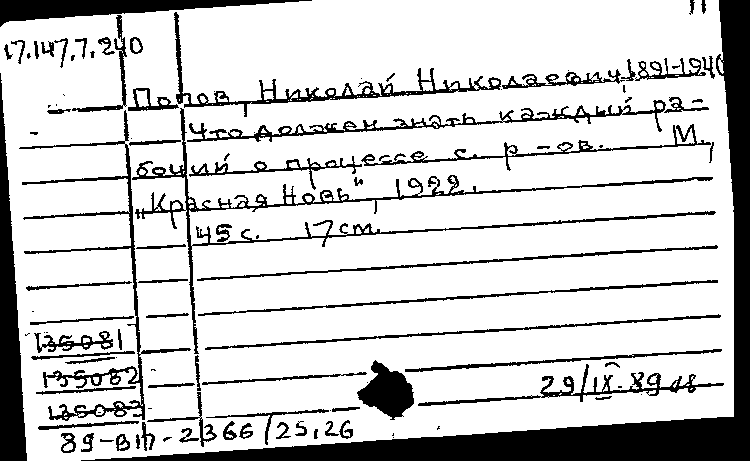 17.147.7.240
Попов, Николай Николаевич, 1891-1940
Что должен знать каждый ра-
бочий о процессе с. р-ов. М.,
"Красная Новь", 1922.
45 с. 17 см.
135081
135082
135083
29/IX-89
89-ВП-2366/25,26